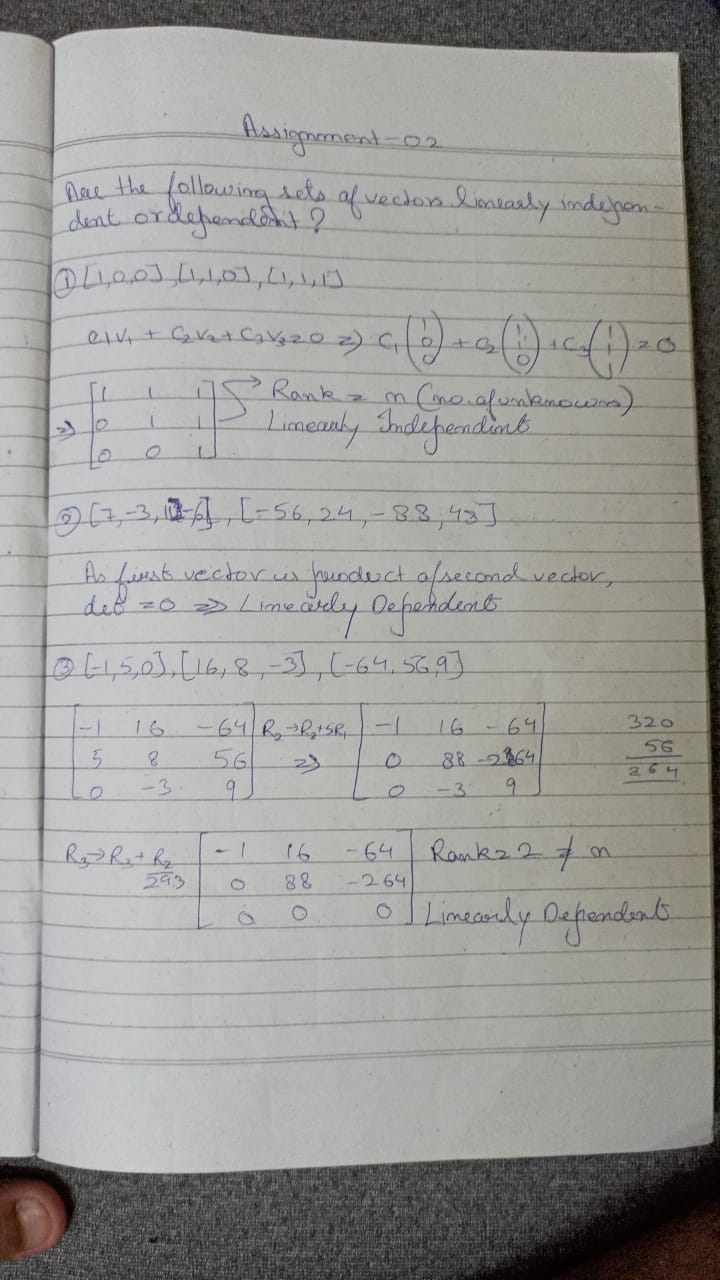 Assignment-02
Are the following sets of vectors linearly indepen-
dent or dependent?
① [1,0,0], [1,1,0], [1,1,1]
c1v1 + c2v2 + c3v3 = 0 => c1 (1 0 0) + c2 (1 1 0) + c3 (1 1 1) = 0
=> [1 1 1 → Rank = n (no. of unknowns)
0 1 1 Linearly Independent
0 0 1]
② [7,-3,11,-6], [-56,24,-88,48]
As first vector is product of second vector,
det = 0 => Linearly Dependent
③ [-1,5,0], [16,8,-3], [-64,56,9]
[-1 16 -64] R2→R2+5R1 [-1 16 -64] 320
5 8 56 => 0 88 -264 56
0 -3 9 0 -3 9 264
R3→R3+R2/29.3 [-1 16 -64] Rank = 2 ≠ n
0 88 -264
0 0 0 Linearly Dependent